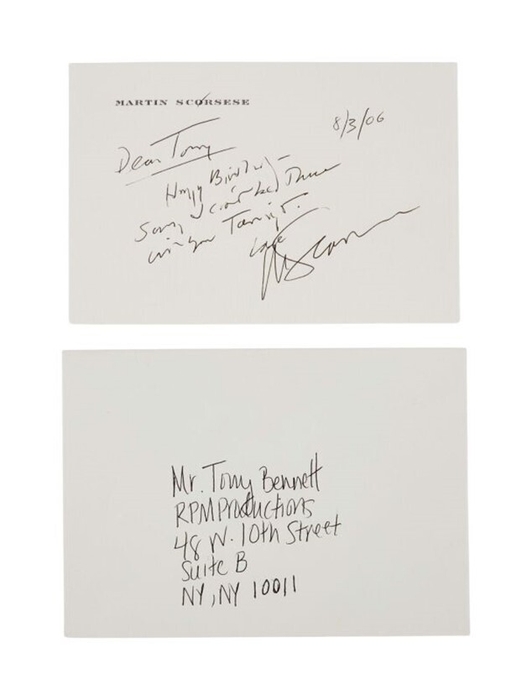 MARTIN SCORSESE
8/3/06
Dear Tony
Happy Birthday –
Sorry I can't be there
with you Tonight.
Love
MScorsese
Mr. Tony Bennett
RPM Productions
48 W. 10th Street
Suite B
NY, NY 10011